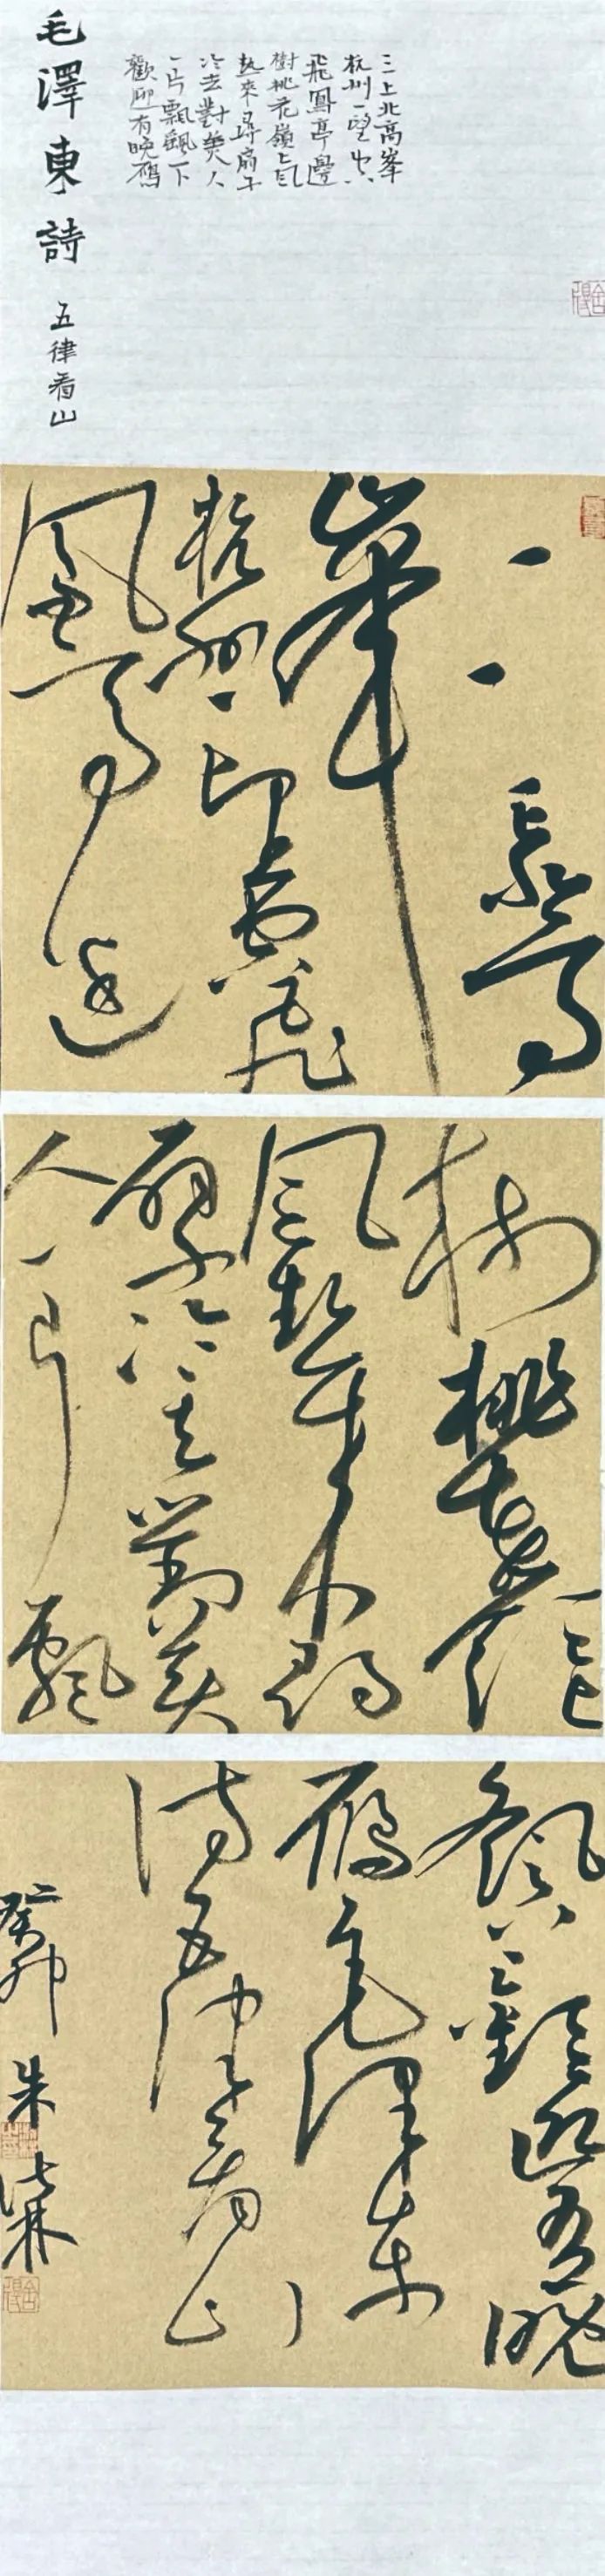 三上北高峯
杭州一望空
飛鳳亭邊
樹桃花嶺上風
熱來尋扇子
冷去對美人
一片飄飄下
歡迎有晚鴈
毛澤東詩 五律看山
三上北高
峯
杭州一望空飛
鳳亭邊
樹桃花嶺上
風熱來尋
扇子冷去對美
人一片飄
飄下歡迎有晚
鴈毛澤東
詩五律看山
癸卯 朱